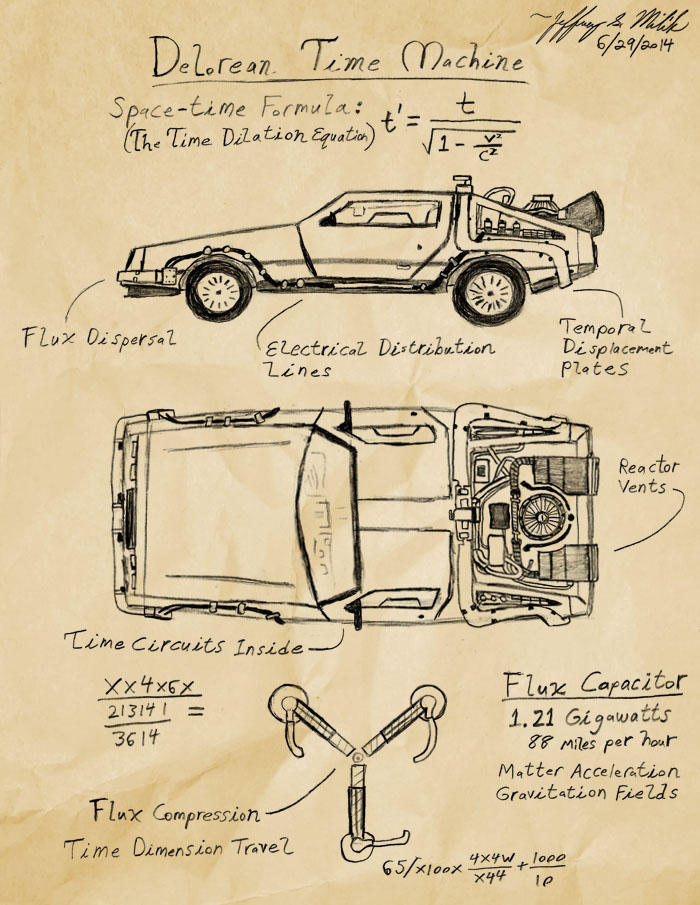 ~Jeffrey S. Milik
6/29/2014
Delorean Time Machine
Space-time Formula:
(The Time Dilation Equation)
t' = t / √(1 - v²/c²)
Flux Dispersal
Electrical Distribution
Lines
Temporal
Displacement
Plates
Reactor
Vents
Time Circuits Inside
XX4x6x
213141 =
3614
Flux Capacitor
1.21 Gigawatts
88 miles per hour
Matter Acceleration
Gravitation Fields
Flux Compression
Time Dimension Travel
65/x100x 4x4w/x44 + 1000/10